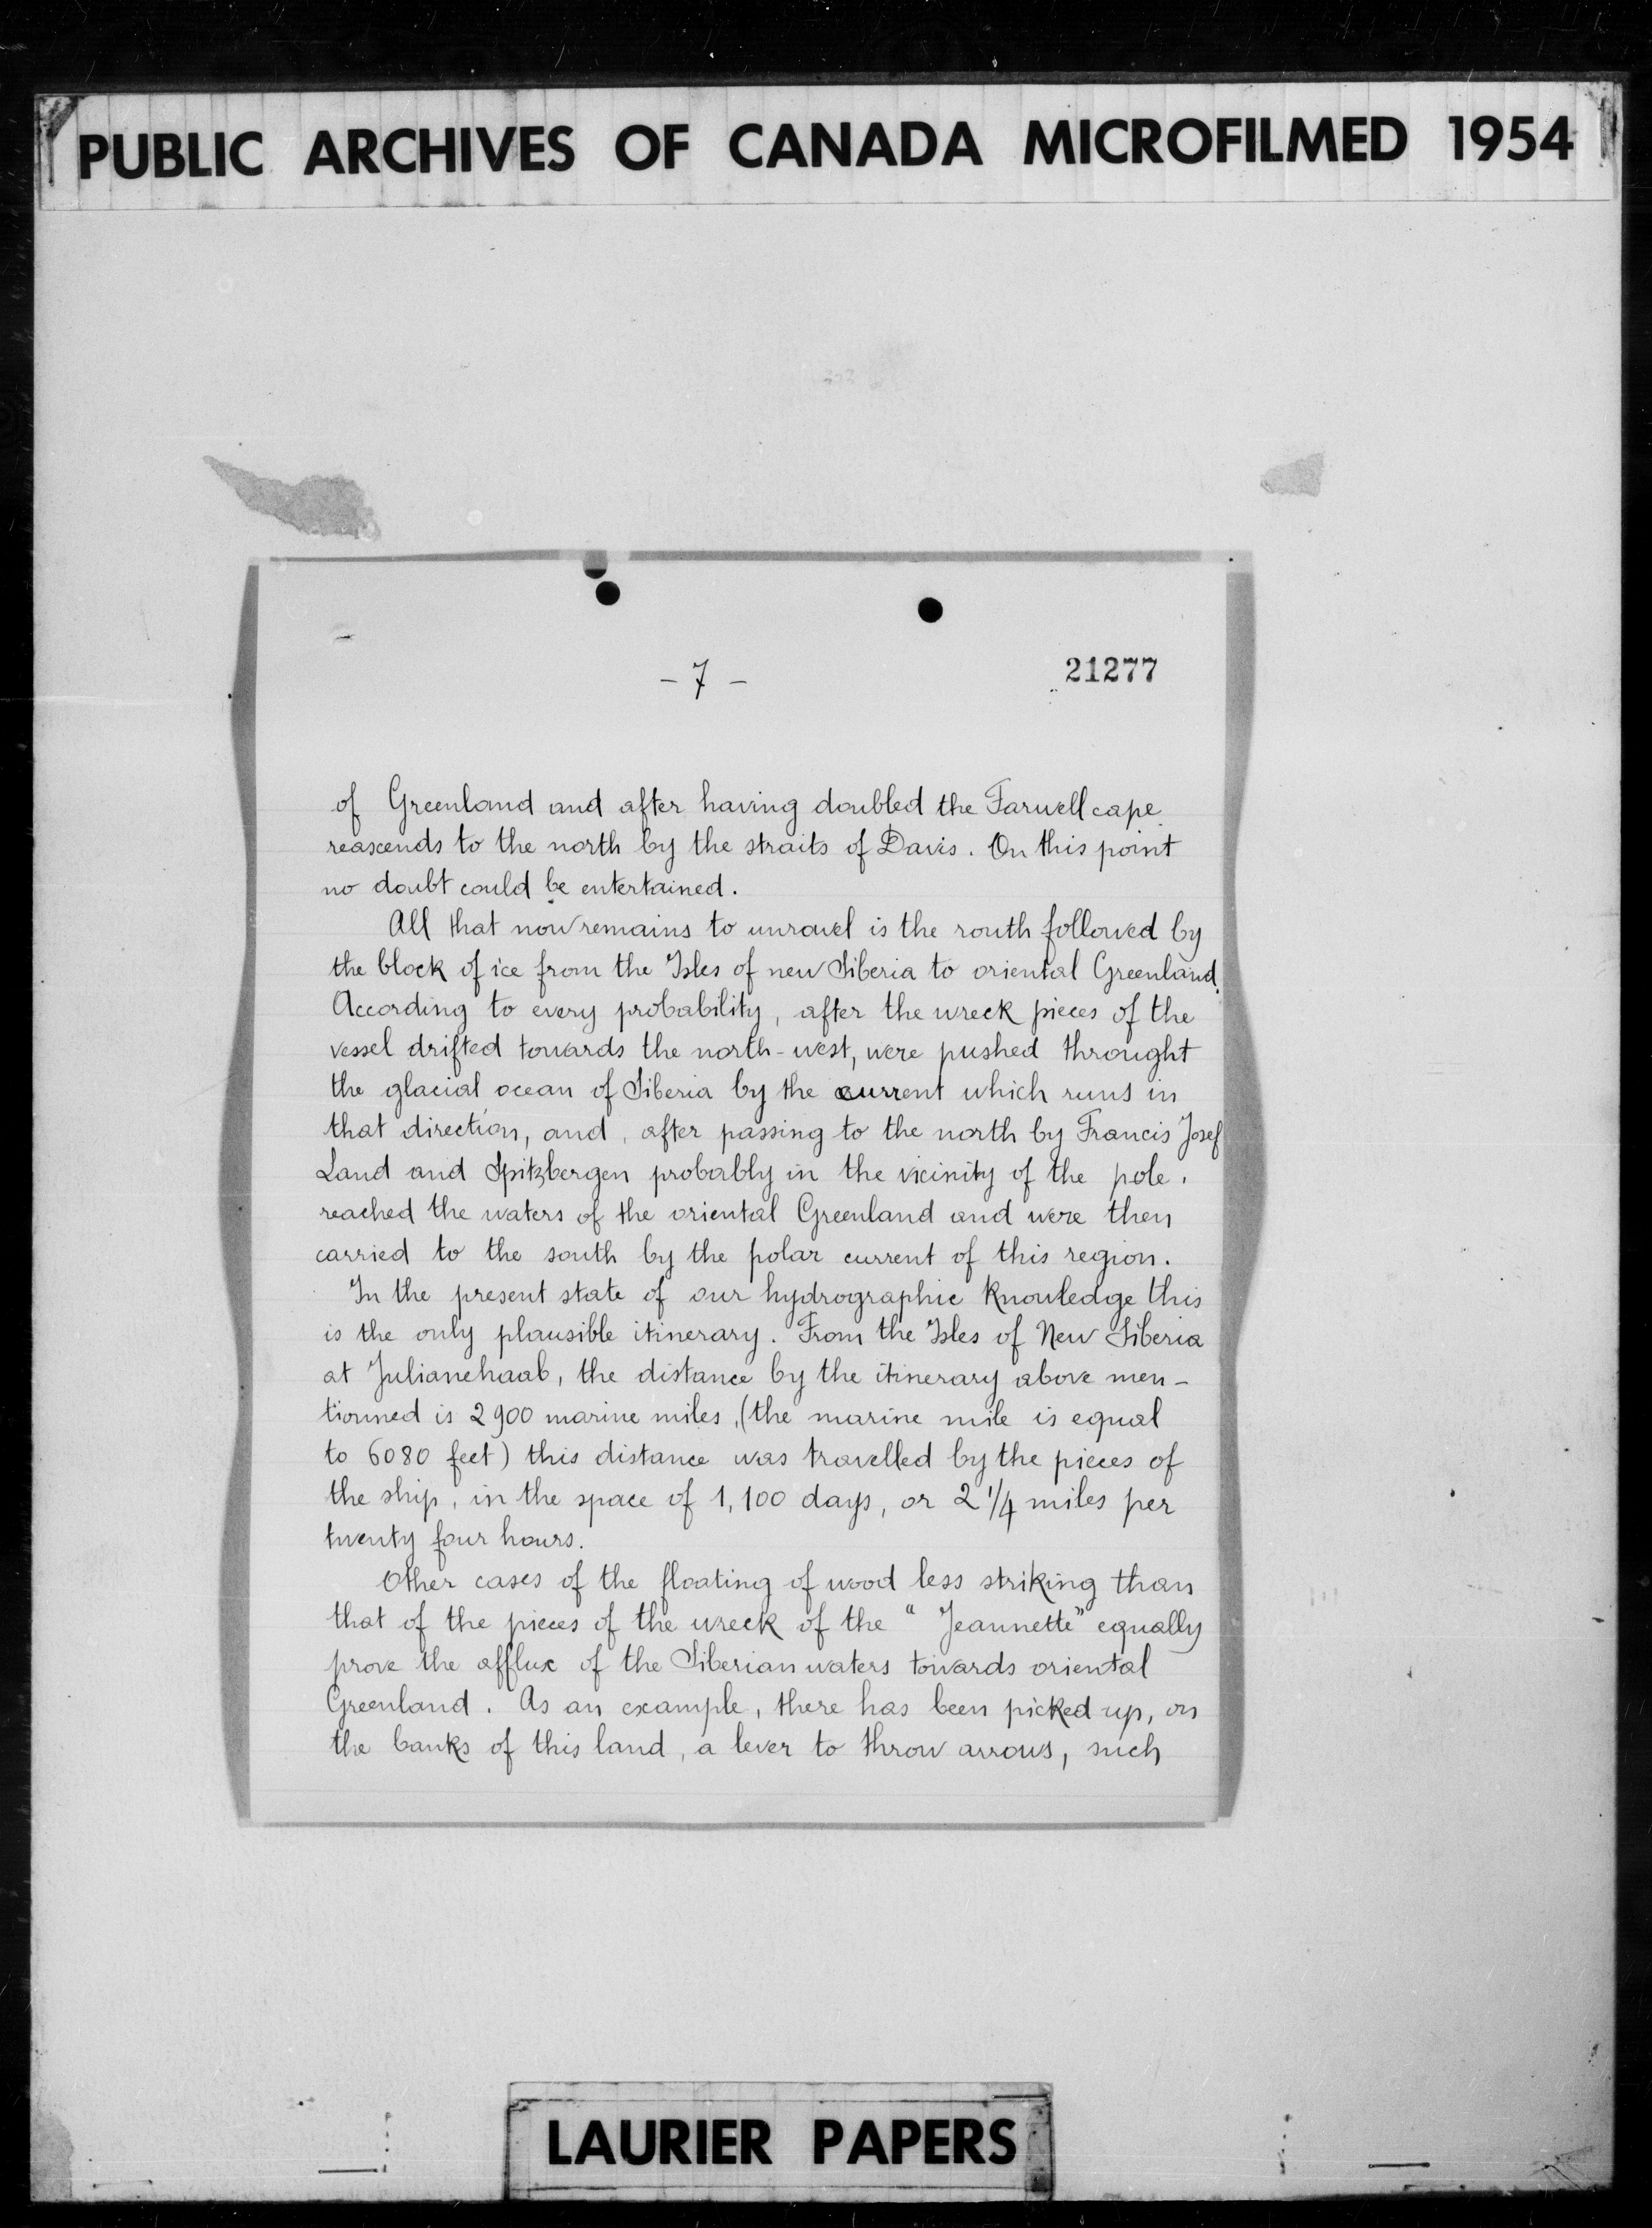 PUBLIC ARCHIVES OF CANADA MICROFILMED 1954
- 7 -
21277
of Greenland and after having doubled the Farwell cape
reascends to the north by the straits of Davis. On this point
no doubt could be entertained.
All that now remains to unravel is the routh followed by
the block of ice from the Isles of new Siberia to oriental Greenland.
According to every probability, after the wreck pieces of the
vessel drifted towards the north-west, were pushed throught
the glacial ocean of Siberia by the current which runs in
that direction, and, after passing to the north by Francis Josef
Land and Spitzbergen probably in the vicinity of the pole,
reached the waters of the oriental Greenland and were then
carried to the south by the polar current of this region.
In the present state of our hydrographic Knowledge this
is the only plausible itinerary. From the Isles of New Siberia
at Julianehaab, the distance by the itinerary above men-
tionned is 2900 marine miles, (the marine mile is equal
to 6080 feet) this distance was travelled by the pieces of
the ship, in the space of 1,100 days, or 2 1/4 miles per
twenty four hours.
Other cases of the floating of wood less striking than
that of the pieces of the wreck of the " Jeannette" equally
prove the afflux of the Siberian waters towards oriental
Greenland. As an example, there has been picked up, on
the banks of this land, a lever to throw arrows, such
LAURIER PAPERS